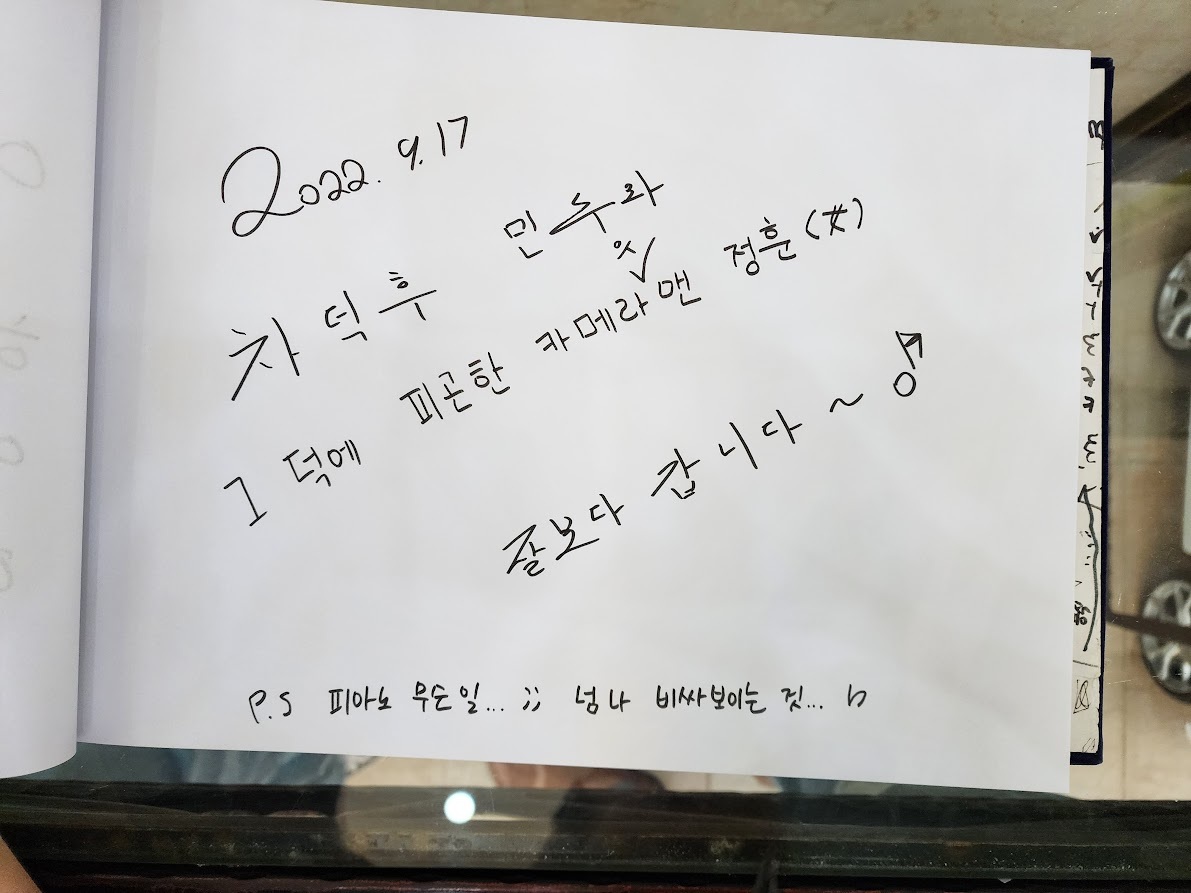 2022. 9. 17
차덕후 민수와
1 덕에 피곤한 카메라맨 정훈(女)
잘보다 갑니다~♪
P.S 피아노 무슨일...;; 넘나 비싸보이는 것... b